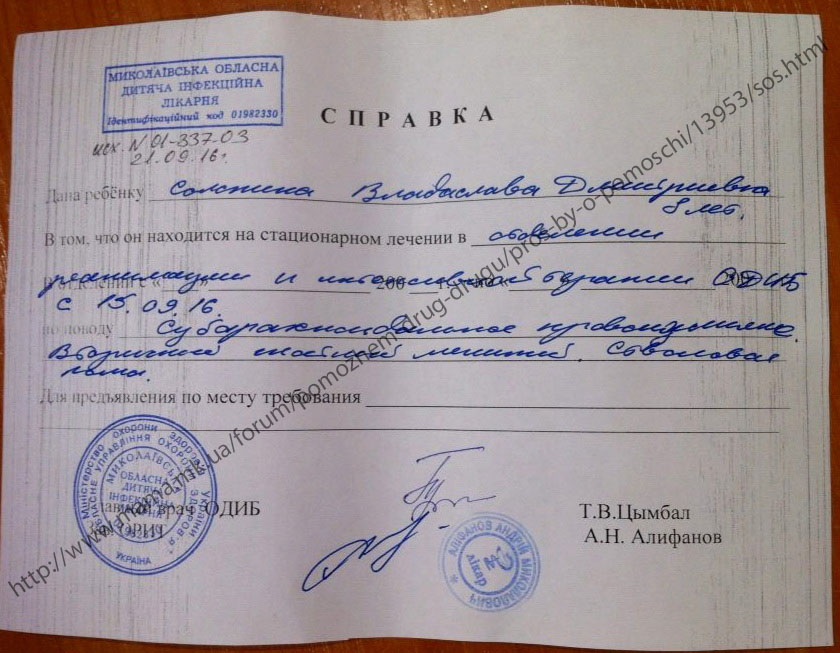 МИКОЛАЇВСЬКА ОБЛАСНА
ДИТЯЧА ІНФЕКЦІЙНА
ЛІКАРНЯ
Ідентифікаційний код 01982330
исх. N 01-837-03
21.09.16г.
СПРАВКА
Дана ребёнку Владислава Дмитриевна
8 лет.
В том, что он находится на стационарном лечении в отделении
реанимации и интенсивной терапии ОДИБ
с 15.09.16.
по поводу Субарахноидальное кровоизлияние.
Вторичный гнойный менингит. Стволовая
кома.
Для предъявления по месту требования
Главный врач ОДИБ
Зав. ОРИТ
Т.В.Цымбал
А.Н. Алифанов
Міністерство охорони здоров'я України
ОБЛАСНЕ УПРАВЛІННЯ ОХОРОНИ ЗДОРОВ'Я
МИКОЛАЇВСЬКА
ОБЛАСНА
ДИТЯЧА
ІНФЕКЦІЙНА
ЛІКАРНЯ
УКРАЇНА
АЛІФАНОВ АНДРІЙ МИКОЛАЙОВИЧ
лікар
http://www.mama.mk.ua/forum/pomozhem-drug-drugu/pros-by-o-pomoschi/13953/sos.html